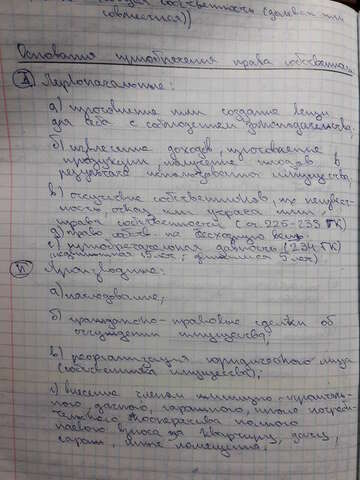 собственности (долевая или
совместная))
Основания приобретения права собственности
I Первоначальные:
а) изготовление или создание вещи
для себя с соблюдением законодательства;
б) извлечение доходов, изготовление
продукции, получение плодов в
результате использования имущества
в) отсутствие собственников, их неизвест-
ность, отказ или утрата ими
права собственности (ст. 225-233 ГК)
д) право собств. на бесхозную вещь
е) приобретательная давность (234 ГК)
(недвижимая 15 лет; движимая 5 лет)
II Производные:
а) наследование;
б) гражданско-правовые сделки об
отчуждении имущества;
в) реорганизация юридического лица
(собственника имущества);
г) внесение членом жилищно-строитель-
ного, дачного, гаражного, иного потреби-
тельского кооператива полного
паевого взноса за квартиру, дачу,
гараж, иное помещение;